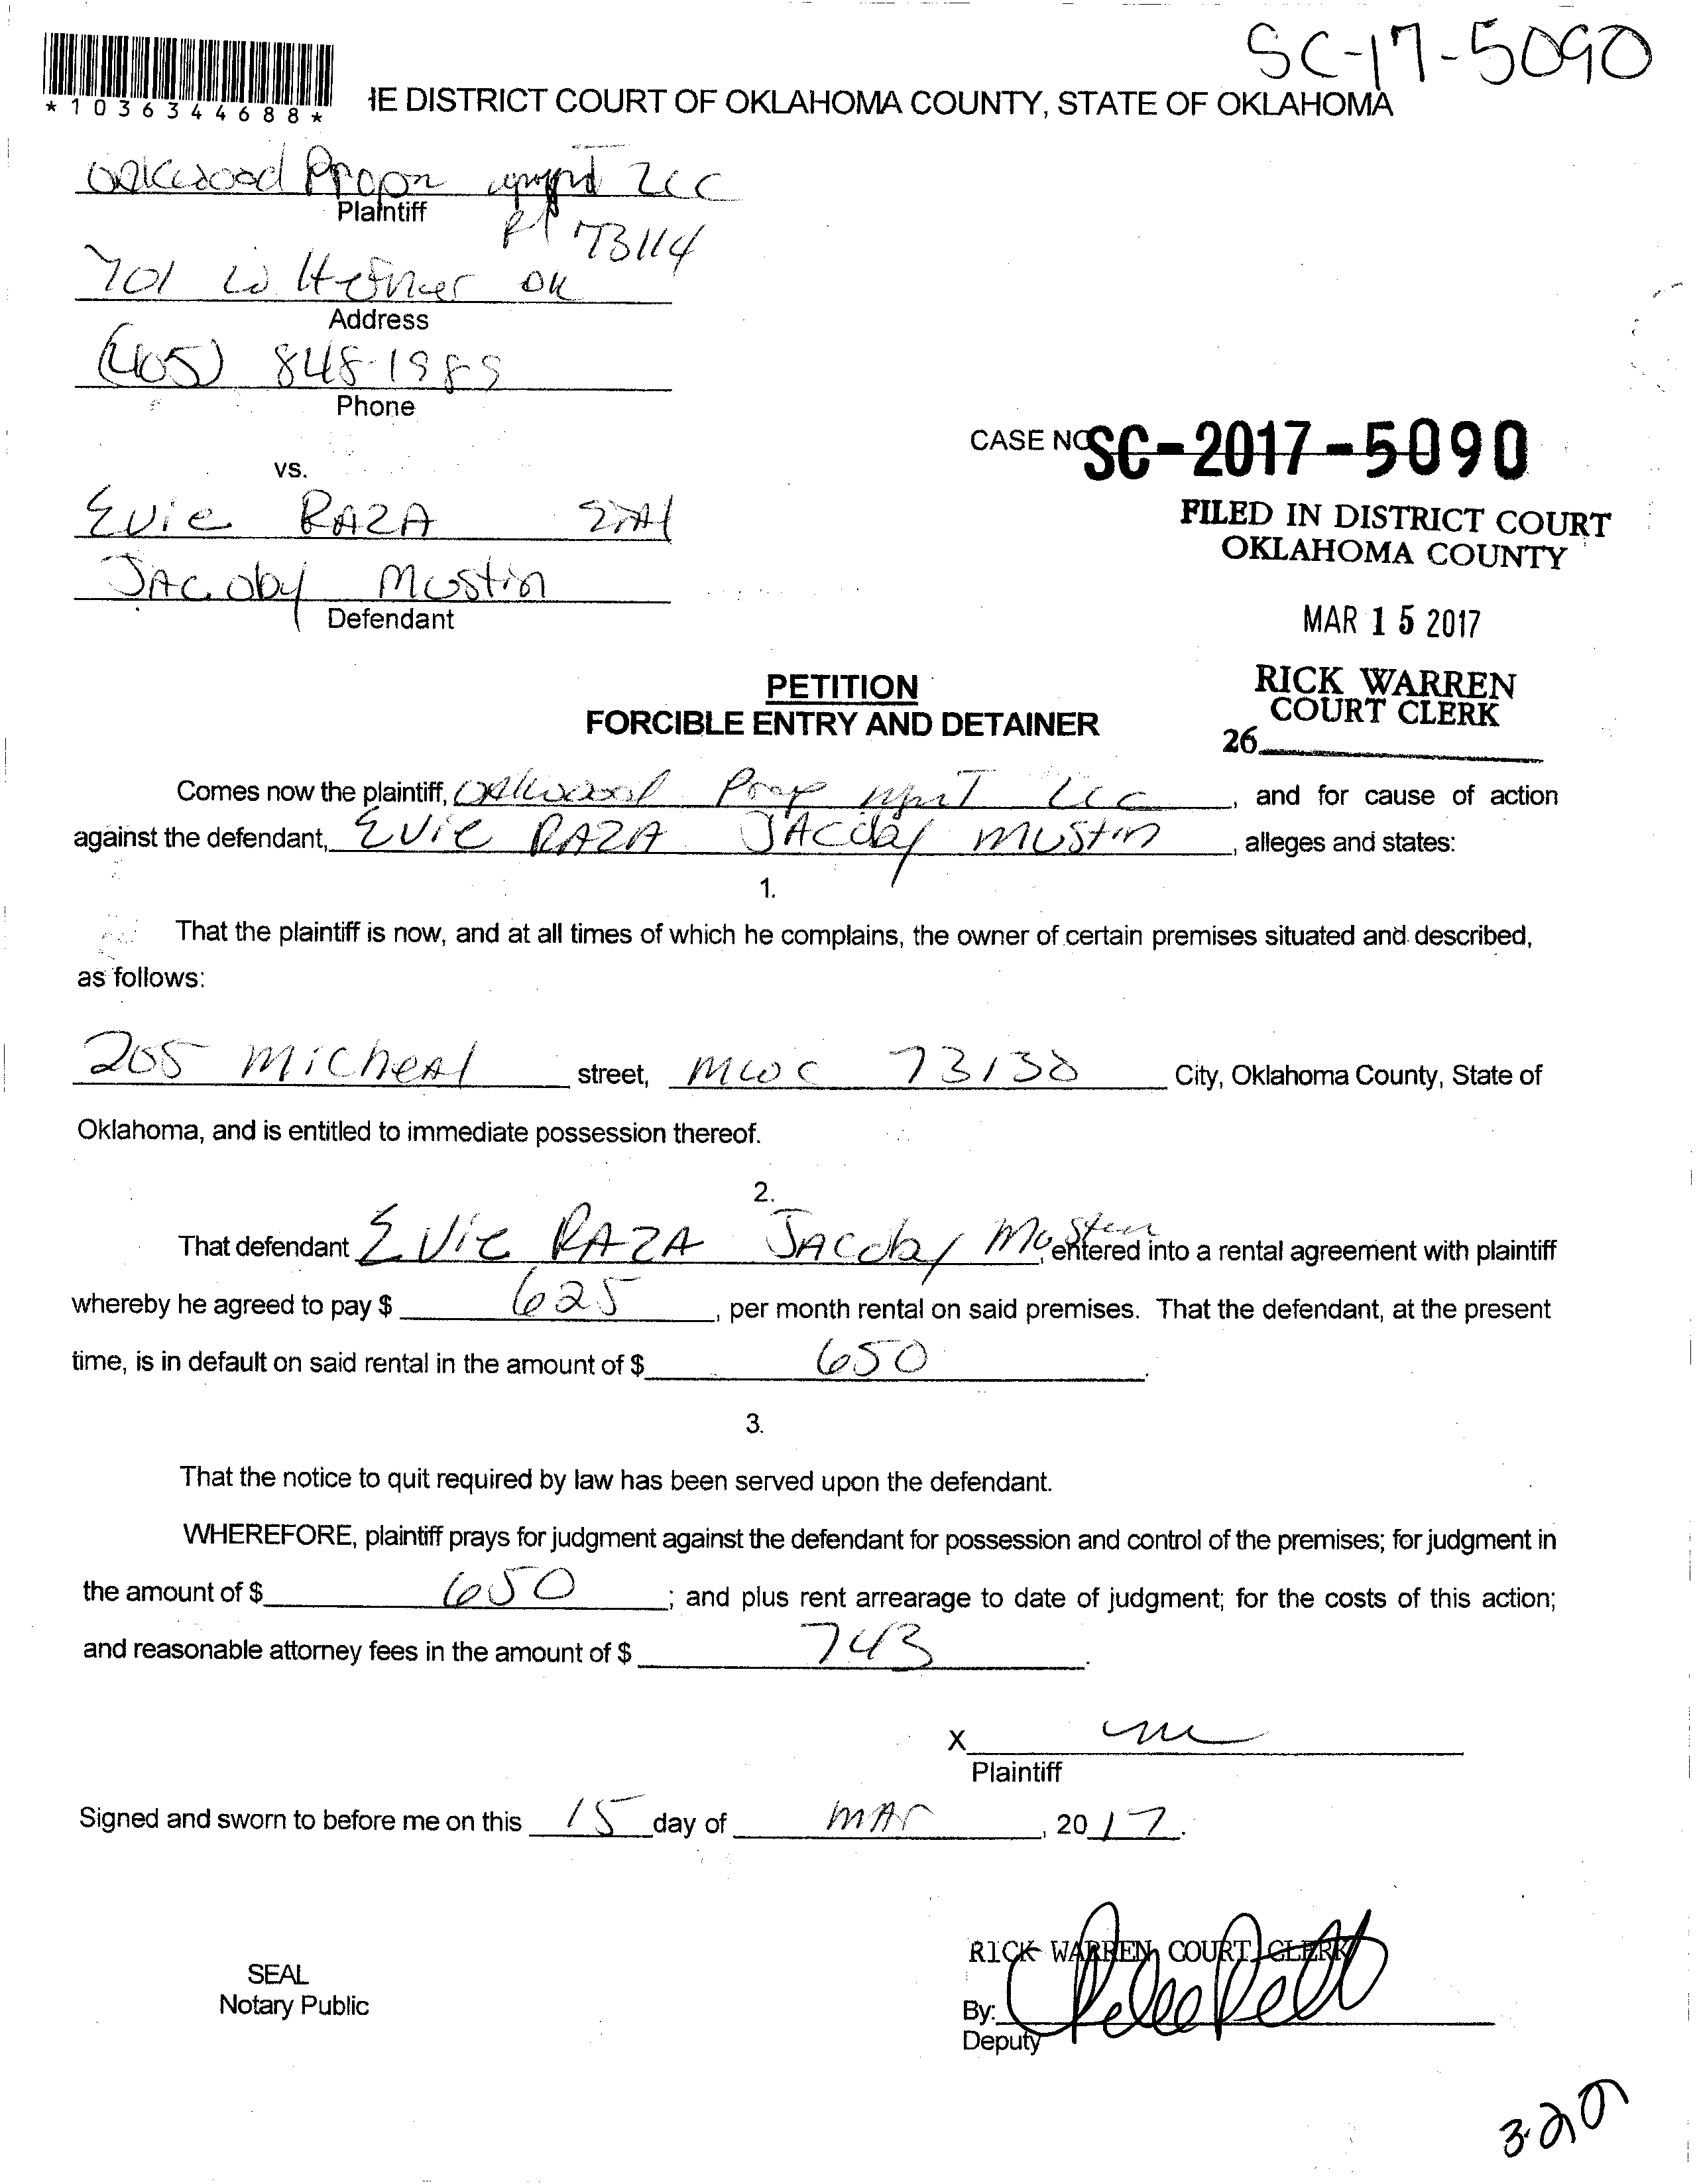 SC-17-5090
*1036344688*
HE DISTRICT COURT OF OKLAHOMA COUNTY, STATE OF OKLAHOMA
Oakwood Prop LLC
Plaintiff
73114
701 W Hefner OK
Address
(405) 848-1989
Phone
CASE NO SC-2017-5090
vs.
FILED IN DISTRICT COURT
OKLAHOMA COUNTY
Evie RAZA
JACoby Mustin
Defendant
MAR 15 2017
RICK WARREN
COURT CLERK
26
PETITION
FORCIBLE ENTRY AND DETAINER
Comes now the plaintiff, Oakwood Prop Mgmt LLC, and for cause of action
against the defendant, Evie RAZA JACoby Mustin, alleges and states:
1.
That the plaintiff is now, and at all times of which he complains, the owner of certain premises situated and described,
as follows:
205 Micheal street, MWC 73130 City, Oklahoma County, State of
Oklahoma, and is entitled to immediate possession thereof.
2.
That defendant Evie RAZA JACoby Musten, entered into a rental agreement with plaintiff
whereby he agreed to pay $ 625, per month rental on said premises. That the defendant, at the present
time, is in default on said rental in the amount of $ 650.
3.
That the notice to quit required by law has been served upon the defendant.
WHEREFORE, plaintiff prays for judgment against the defendant for possession and control of the premises; for judgment in
the amount of $ 650; and plus rent arrearage to date of judgment; for the costs of this action;
and reasonable attorney fees in the amount of $ 743.
X
Plaintiff
Signed and sworn to before me on this 15 day of MAr, 2017.
RICK WARREN, COURT CLERK
SEAL
Notary Public
By:
Deputy